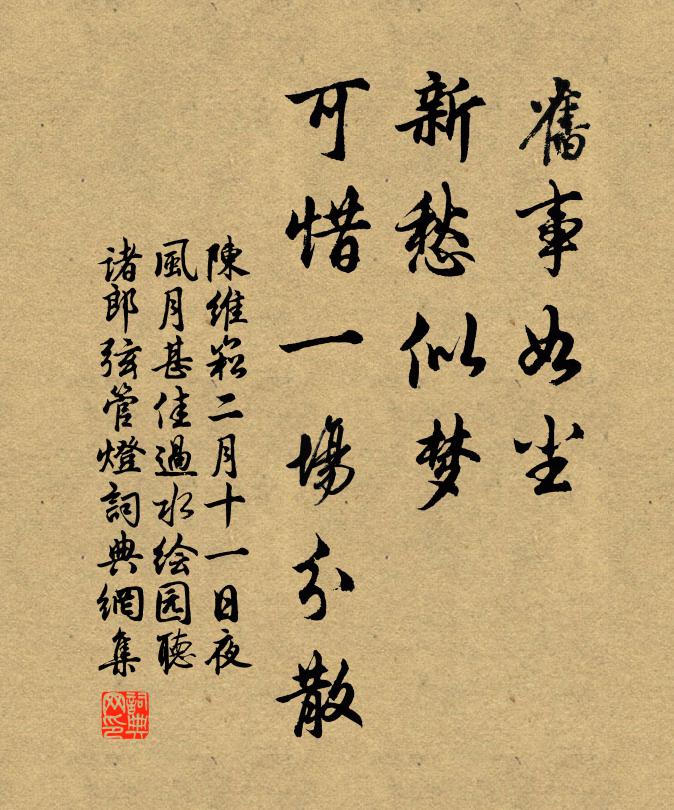 舊事如尘
新愁似梦
可惜一場分散
陳維崧二月十一日夜
風月甚佳過水绘园聽
诸郎弦管燈詞典網集
詞典网印